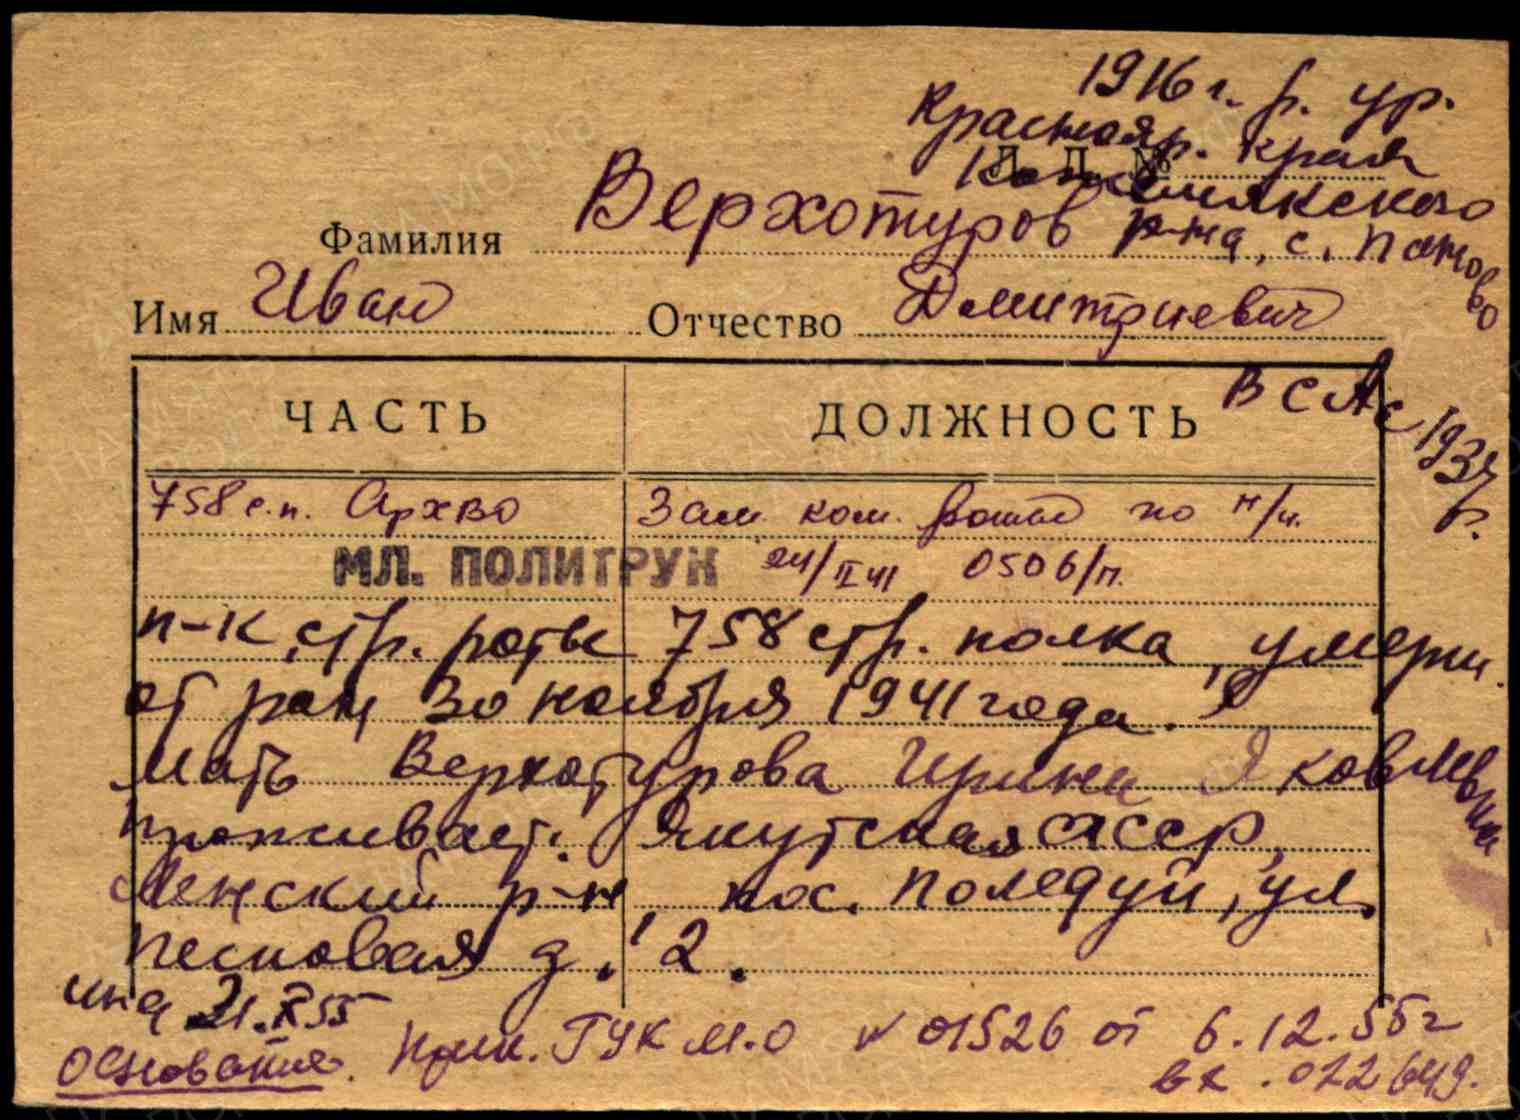 1916 г. р. ур.
Краснояр. края
Л. Д. №
р-на, с. Паново
Фамилия Верхотуров
Имя Иван Отчество Дмитриевич
В СА с 1937 г.
ЧАСТЬ ДОЛЖНОСТЬ
758 с.п. АрхВО Зам. ком. роты по п/ч.
МЛ. ПОЛИТРУК 24/II 41 0506/п.
п-к стр. роты 758 стр. полка, умер
от ран 30 ноября 1941 года.
Мать Верхотурова Ирина Яковлевна
проживает: Якутская АССР,
Ленский р-н, пос. Пеледуй, ул.
Песковая д. 2.
21.X 55
Основание. Прик. ГУК М.О № 01526 от 6.12.55 г
вх. 022649.